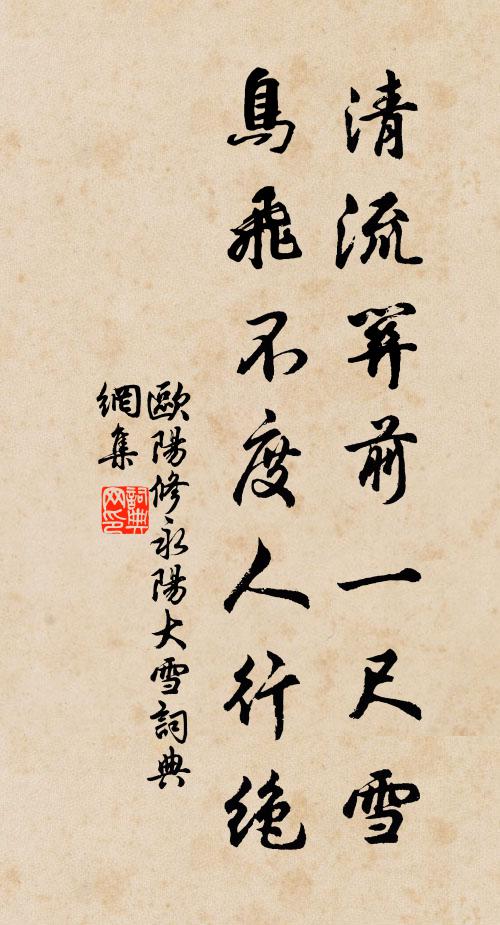 清流關前一尺雪
鳥飛不度人行絶
歐陽修永陽大雪詞典
網集
詞典
网印